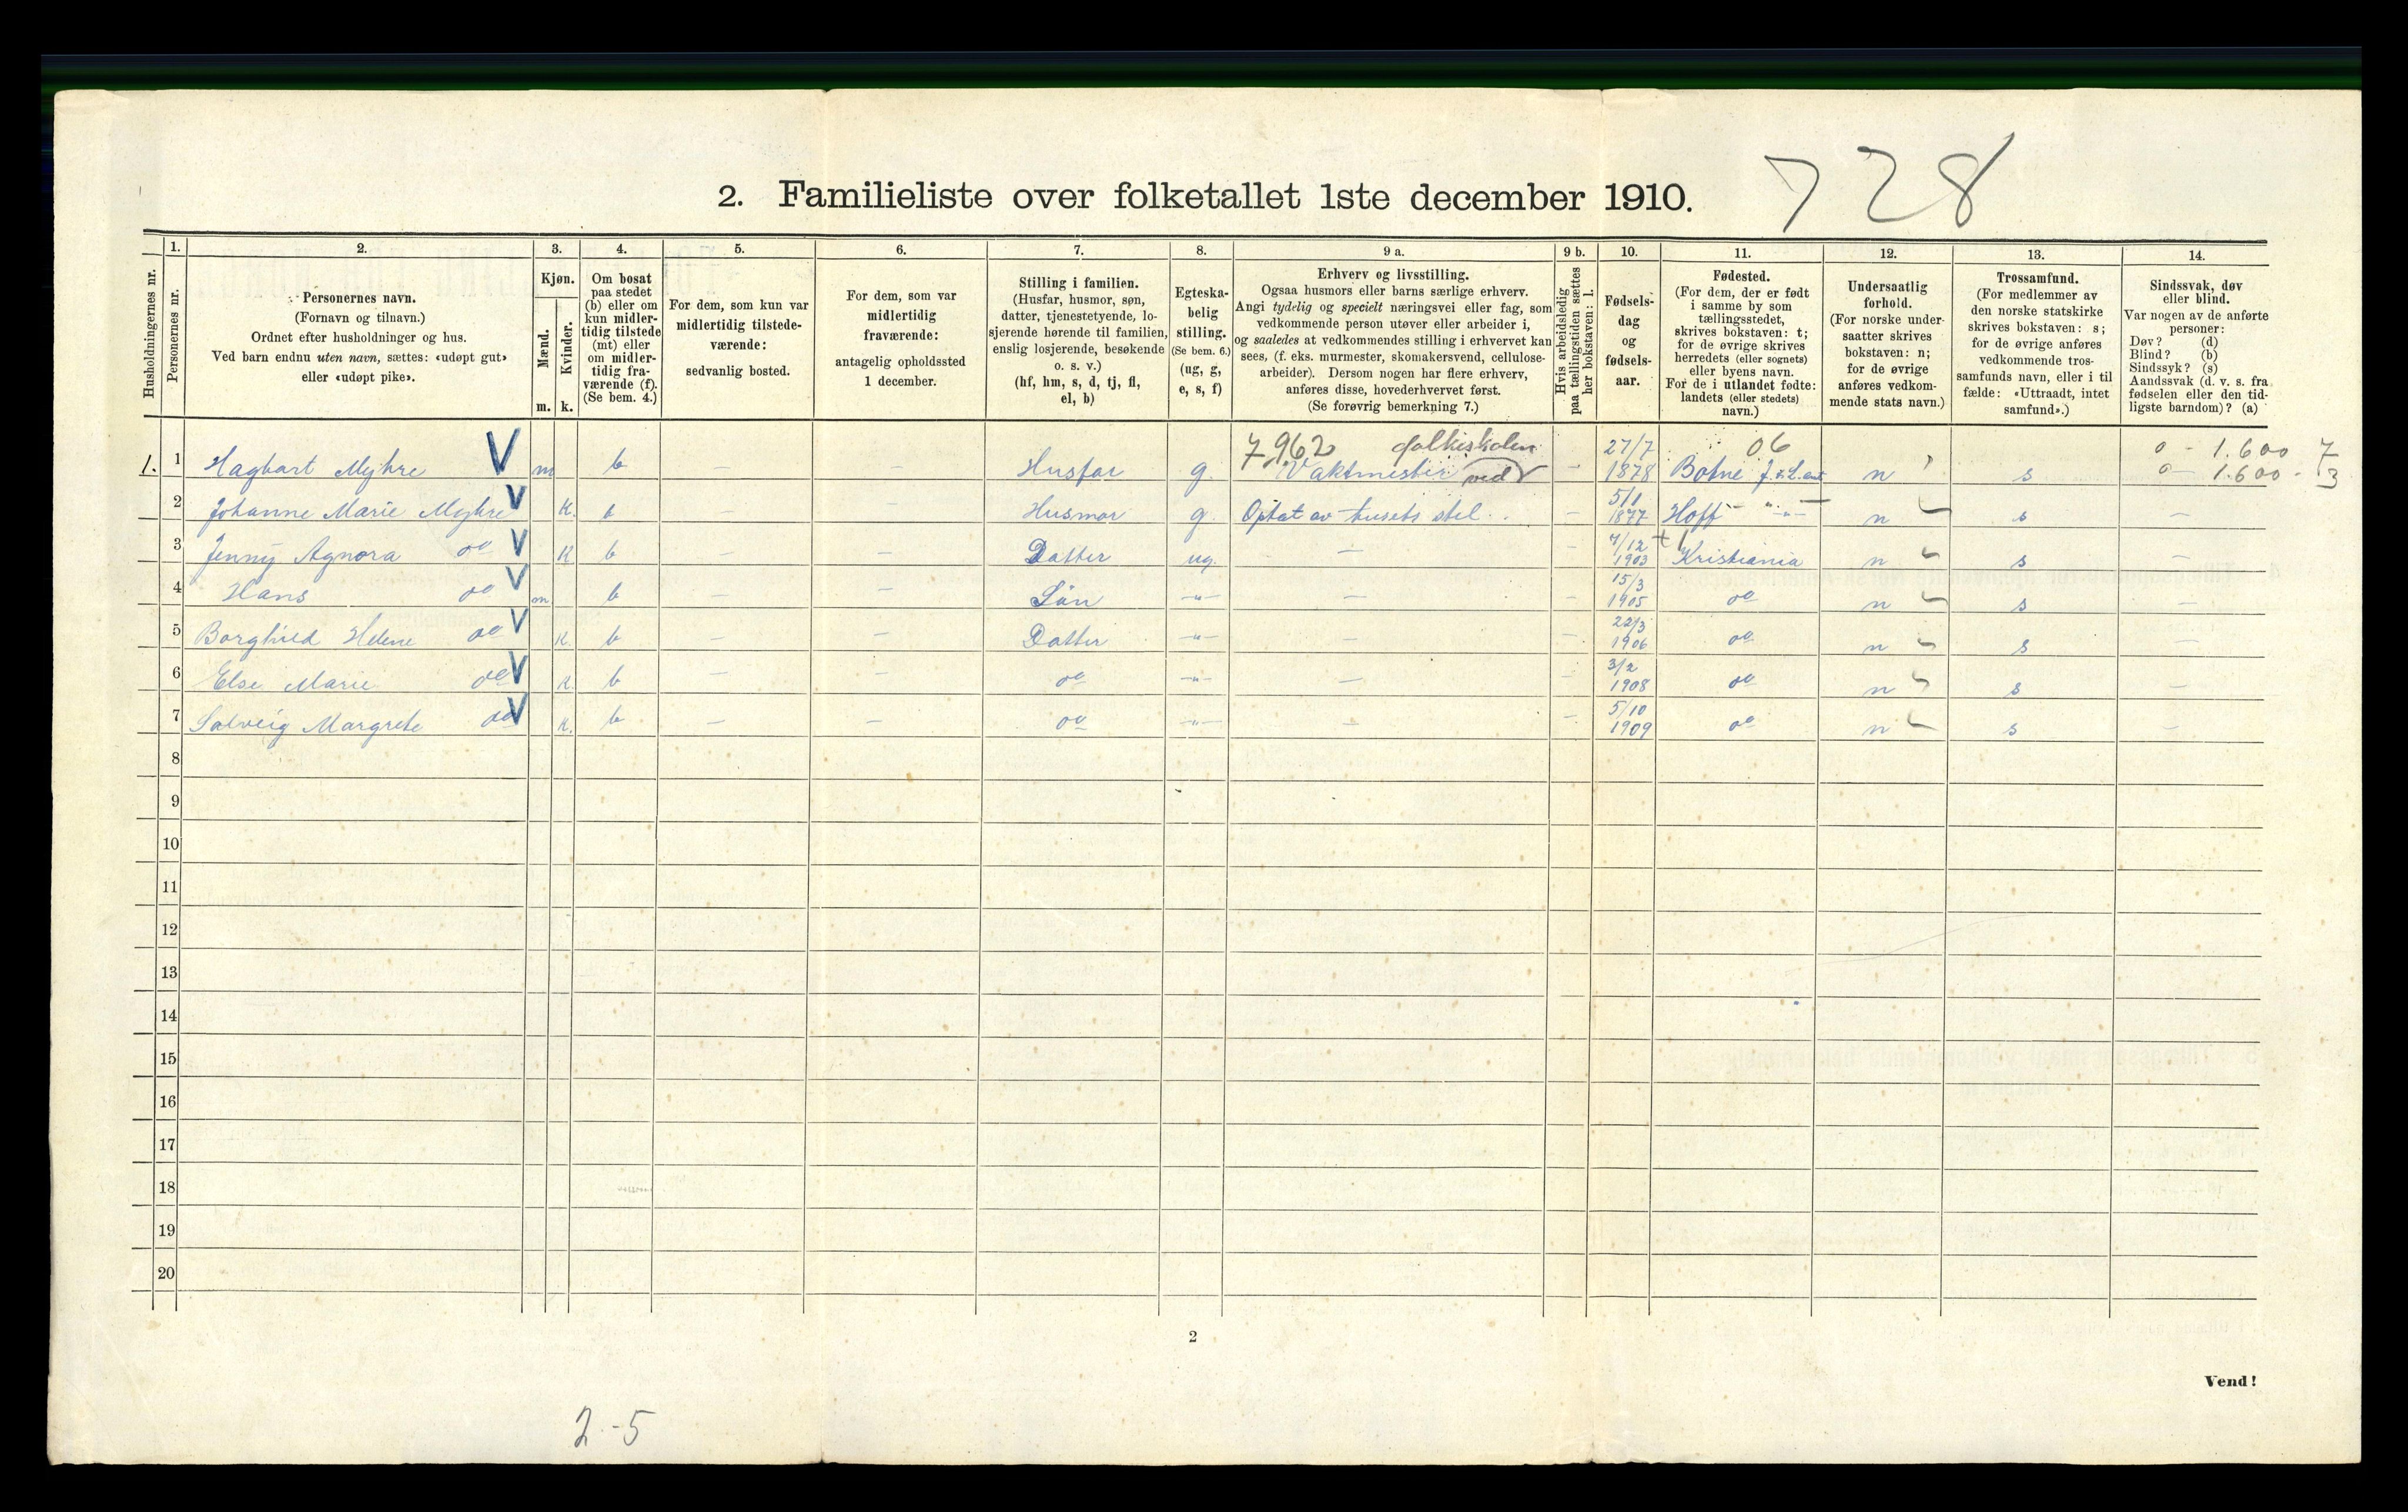 728
2. Familieliste over folketallet 1ste december 1910.
Husholdningernes nr.
1.
Personernes nr.
2.
Personernes navn.
(Fornavn og tilnavn.)
Ordnet efter husholdninger og hus.
Ved barn endnu uten navn, sættes: «udøpt gut»
eller «udøpt pike».
3.
Kjøn.
Mænd.
Kvinder.
m. k.
4.
Om bosat
paa stedet
(b) eller om
kun midler-
tidig tilstede
(mt) eller
om midler-
tidig fra-
værende (f).
(Se bem. 4.)
5.
For dem, som kun var
midlertidig tilstede-
værende:
sedvanlig bosted.
6.
For dem, som var
midlertidig
fraværende:
antagelig opholdssted
1 december.
7.
Stilling i familien.
(Husfar, husmor, søn,
datter, tjenestetyende, lo-
sjerende hørende til familien,
enslig losjerende, besøkende
o. s. v.)
(hf, hm, s, d, tj, fl,
el, b)
8.
Egteska-
belig
stilling.
(Se bem. 6.)
(ug, g,
e, s, f)
9 a.
Erhverv og livsstilling.
Ogsaa husmors eller barns særlige erhverv.
Angi tydelig og specielt næringsvei eller fag, som
vedkommende person utøver eller arbeider i,
og saaledes at vedkommendes stilling i erhvervet kan
sees, (f. eks. murmester, skomakersvend, cellulose-
arbeider). Dersom nogen har flere erhverv,
anføres disse, hovederhvervet først.
(Se forøvrig bemerkning 7.)
9 b.
Hvis arbeidsledig
paa tællingstiden sættes
her bokstaven: l.
10.
Fødsels-
dag
og
fødsels-
aar.
11.
Fødested.
(For dem, der er født
i samme by som
tællingsstedet,
skrives bokstaven: t;
for de øvrige skrives
herredets (eller sognets)
eller byens navn.
For de i utlandet fødte:
landets (eller stedets)
navn.)
12.
Undersaatlig
forhold.
(For norske under-
saatter skrives
bokstaven: n;
for de øvrige
anføres vedkom-
mende stats navn.)
13.
Trossamfund.
(For medlemmer av
den norske statskirke
skrives bokstaven: s;
for de øvrige anføres
vedkommende tros-
samfunds navn, eller i til
fælde: «Uttraadt, intet
samfund».)
14.
Sindssvak, døv
eller blind.
Var nogen av de anførte
personer:
Døv? (d)
Blind? (b)
Sindssyk? (s)
Aandssvak (d. v. s. fra
fødselen eller den tid-
ligste barndom)? (a)
7.962 folkeskolen 27/7 06 0 - 1.600 7
1. 1 Hagbart Myhre V m b – – Husfar g. Vaktmester ved – 1878 Botne J. & L. amt n s 0 – 1.600 - 3
2 Johanne Marie Myhre V K. b – – Husmor g. Optat av husets stel. – 5/1 1877 Hoff – " – n s –
3 Jenny Agnora do V K b – – Datter ug. – – 4/12 1903 + Kristiania n s –
4 Hans do V m b – – Sön –"– – – 15/3 1905 do n s –
5 Borghild Helene do V K. b – – Datter –"– – – 22/3 1906 do n s –
6 Else Marie do V K. b – – do –"– – – 3/2 1908 do n s –
7 Solveig Margrete do V K. b – – do –"– – – 5/10 1909 do n s –
8
9
10
11
12
13
14
15
16
17
18
19
20
2
Vend!
2-5